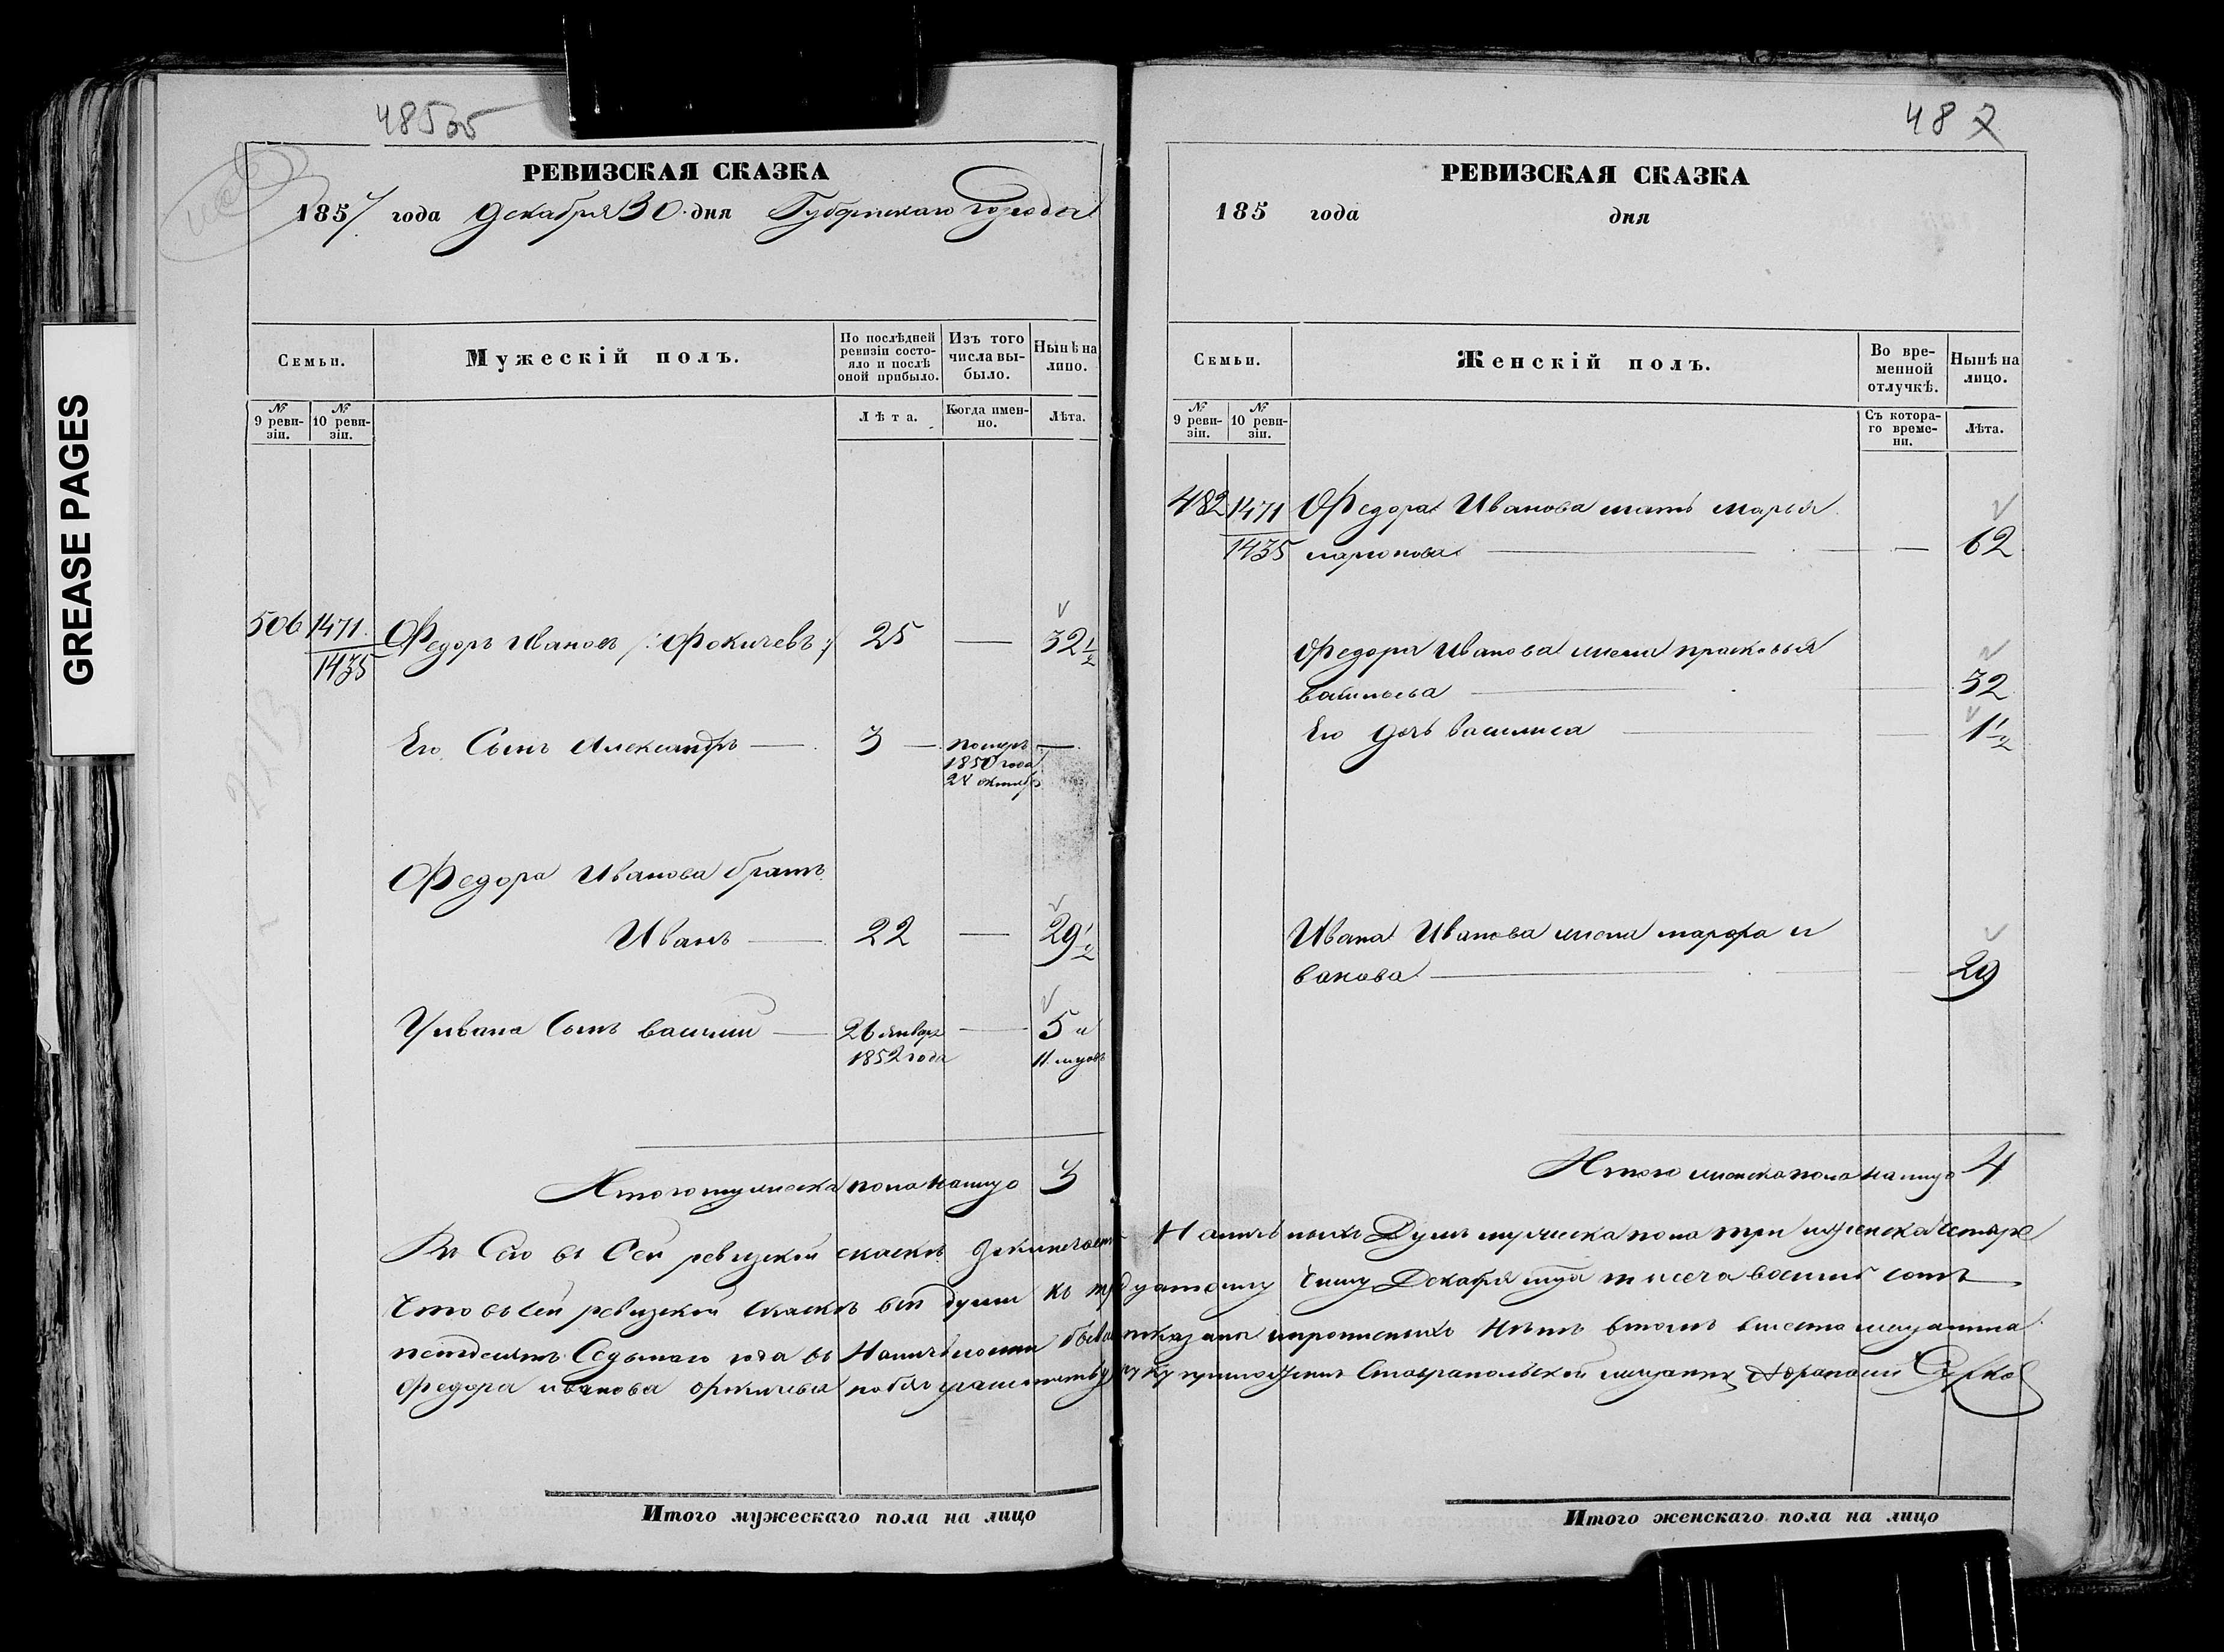 485 об
РЕВИЗСКАЯ СКАЗКА
1857 года Декабря 30 дня Губернскаго города
Семьи.
Мужескій полъ.
По послѣдней ревизіи состояло и послѣ оной прибыло.
Изъ того числа выбыло.
Нынѣ на лицо.
№ 9 ревизіи.
№ 10 ревизіи.
Лѣта.
Когда именно.
Лѣта.
506 1471 Федоръ Ивановъ /:Фокичевъ:/ 25 — 32 1/2
1435
Его Сынъ Александръ — 3 — померъ —
1850 года
24 октябр
Федора Иванова братъ
Иванъ — 22 — 29 1/2
У ивана Сынъ василий — 26 января — 5 и
1852 года 11 мцовъ
Итого мужеска пола на лицо 3
487
РЕВИЗСКАЯ СКАЗКА
185 года дня
Семьи.
Женскій полъ.
Во временной отлучкѣ.
Нынѣ на лицо.
№ 9 ревизіи.
№ 10 ревизіи.
Съ котораго времени.
Лѣта.
482 1471 Федора Иванова мать марья
1435 ларионова — — 62
Федора Иванова жена прасковья
васильева — 32
Его дочь василиса — 1 1/2
Ивана Иванова жена марфа и
ванова — 29
Итого женска пола на лицо 4
сей ревизской сказкѣ Наличныхъ Душъ мужеска пола три и женска четыре
Что в сей ревизской скаскѣ все души къ тридцатому числу Декабря мца тысеча восимъ сотъ
петдесятъ Седьмаго года въ Наличности показаны и прописныхъ Нѣтъ вместо мещанина
Федора иванова фокичева руку приложилъ Ставрапольской мещанинъ
Итого мужескаго пола на лицо
Итого женскаго пола на лицо
GREASE PAGES